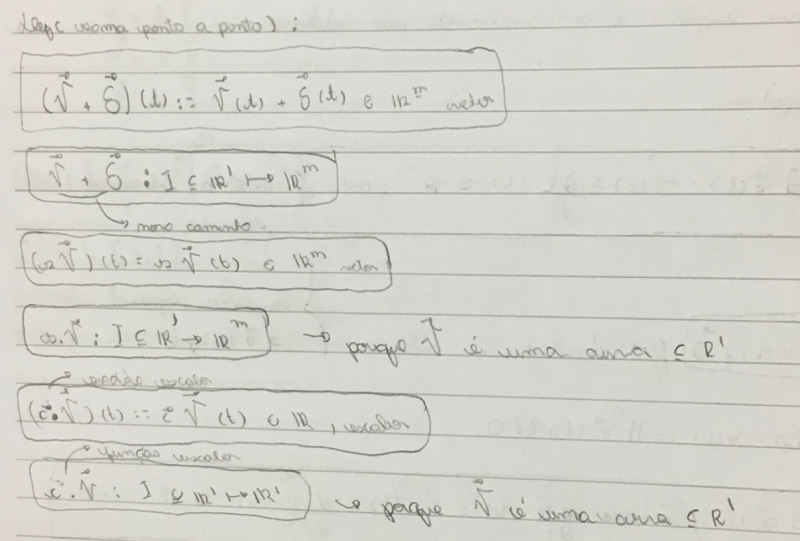 Def (soma ponto a ponto) :
(γ⃗ + δ⃗) (t) := γ⃗(t) + δ⃗(t) ∈ ℝᵐ vetor
γ⃗ + δ⃗ : I ⊆ ℝ¹ ↦ ℝᵐ
→ novo caminho
γ⃗) (t) = γ⃗(t) ∈ ℝᵐ vetor
γ⃗ : I ⊆ ℝ¹ → ℝᵐ → porque γ⃗ é uma curva ⊆ ℝ¹
→ escalar
(c⃗.γ⃗) (t) := c⃗ γ⃗ (t) ∈ ℝ, escalar
→ função escalar
c⃗.γ⃗ : I ⊆ ℝ¹ ↦ ℝ¹ → porque γ⃗ é uma curva ⊆ ℝ¹